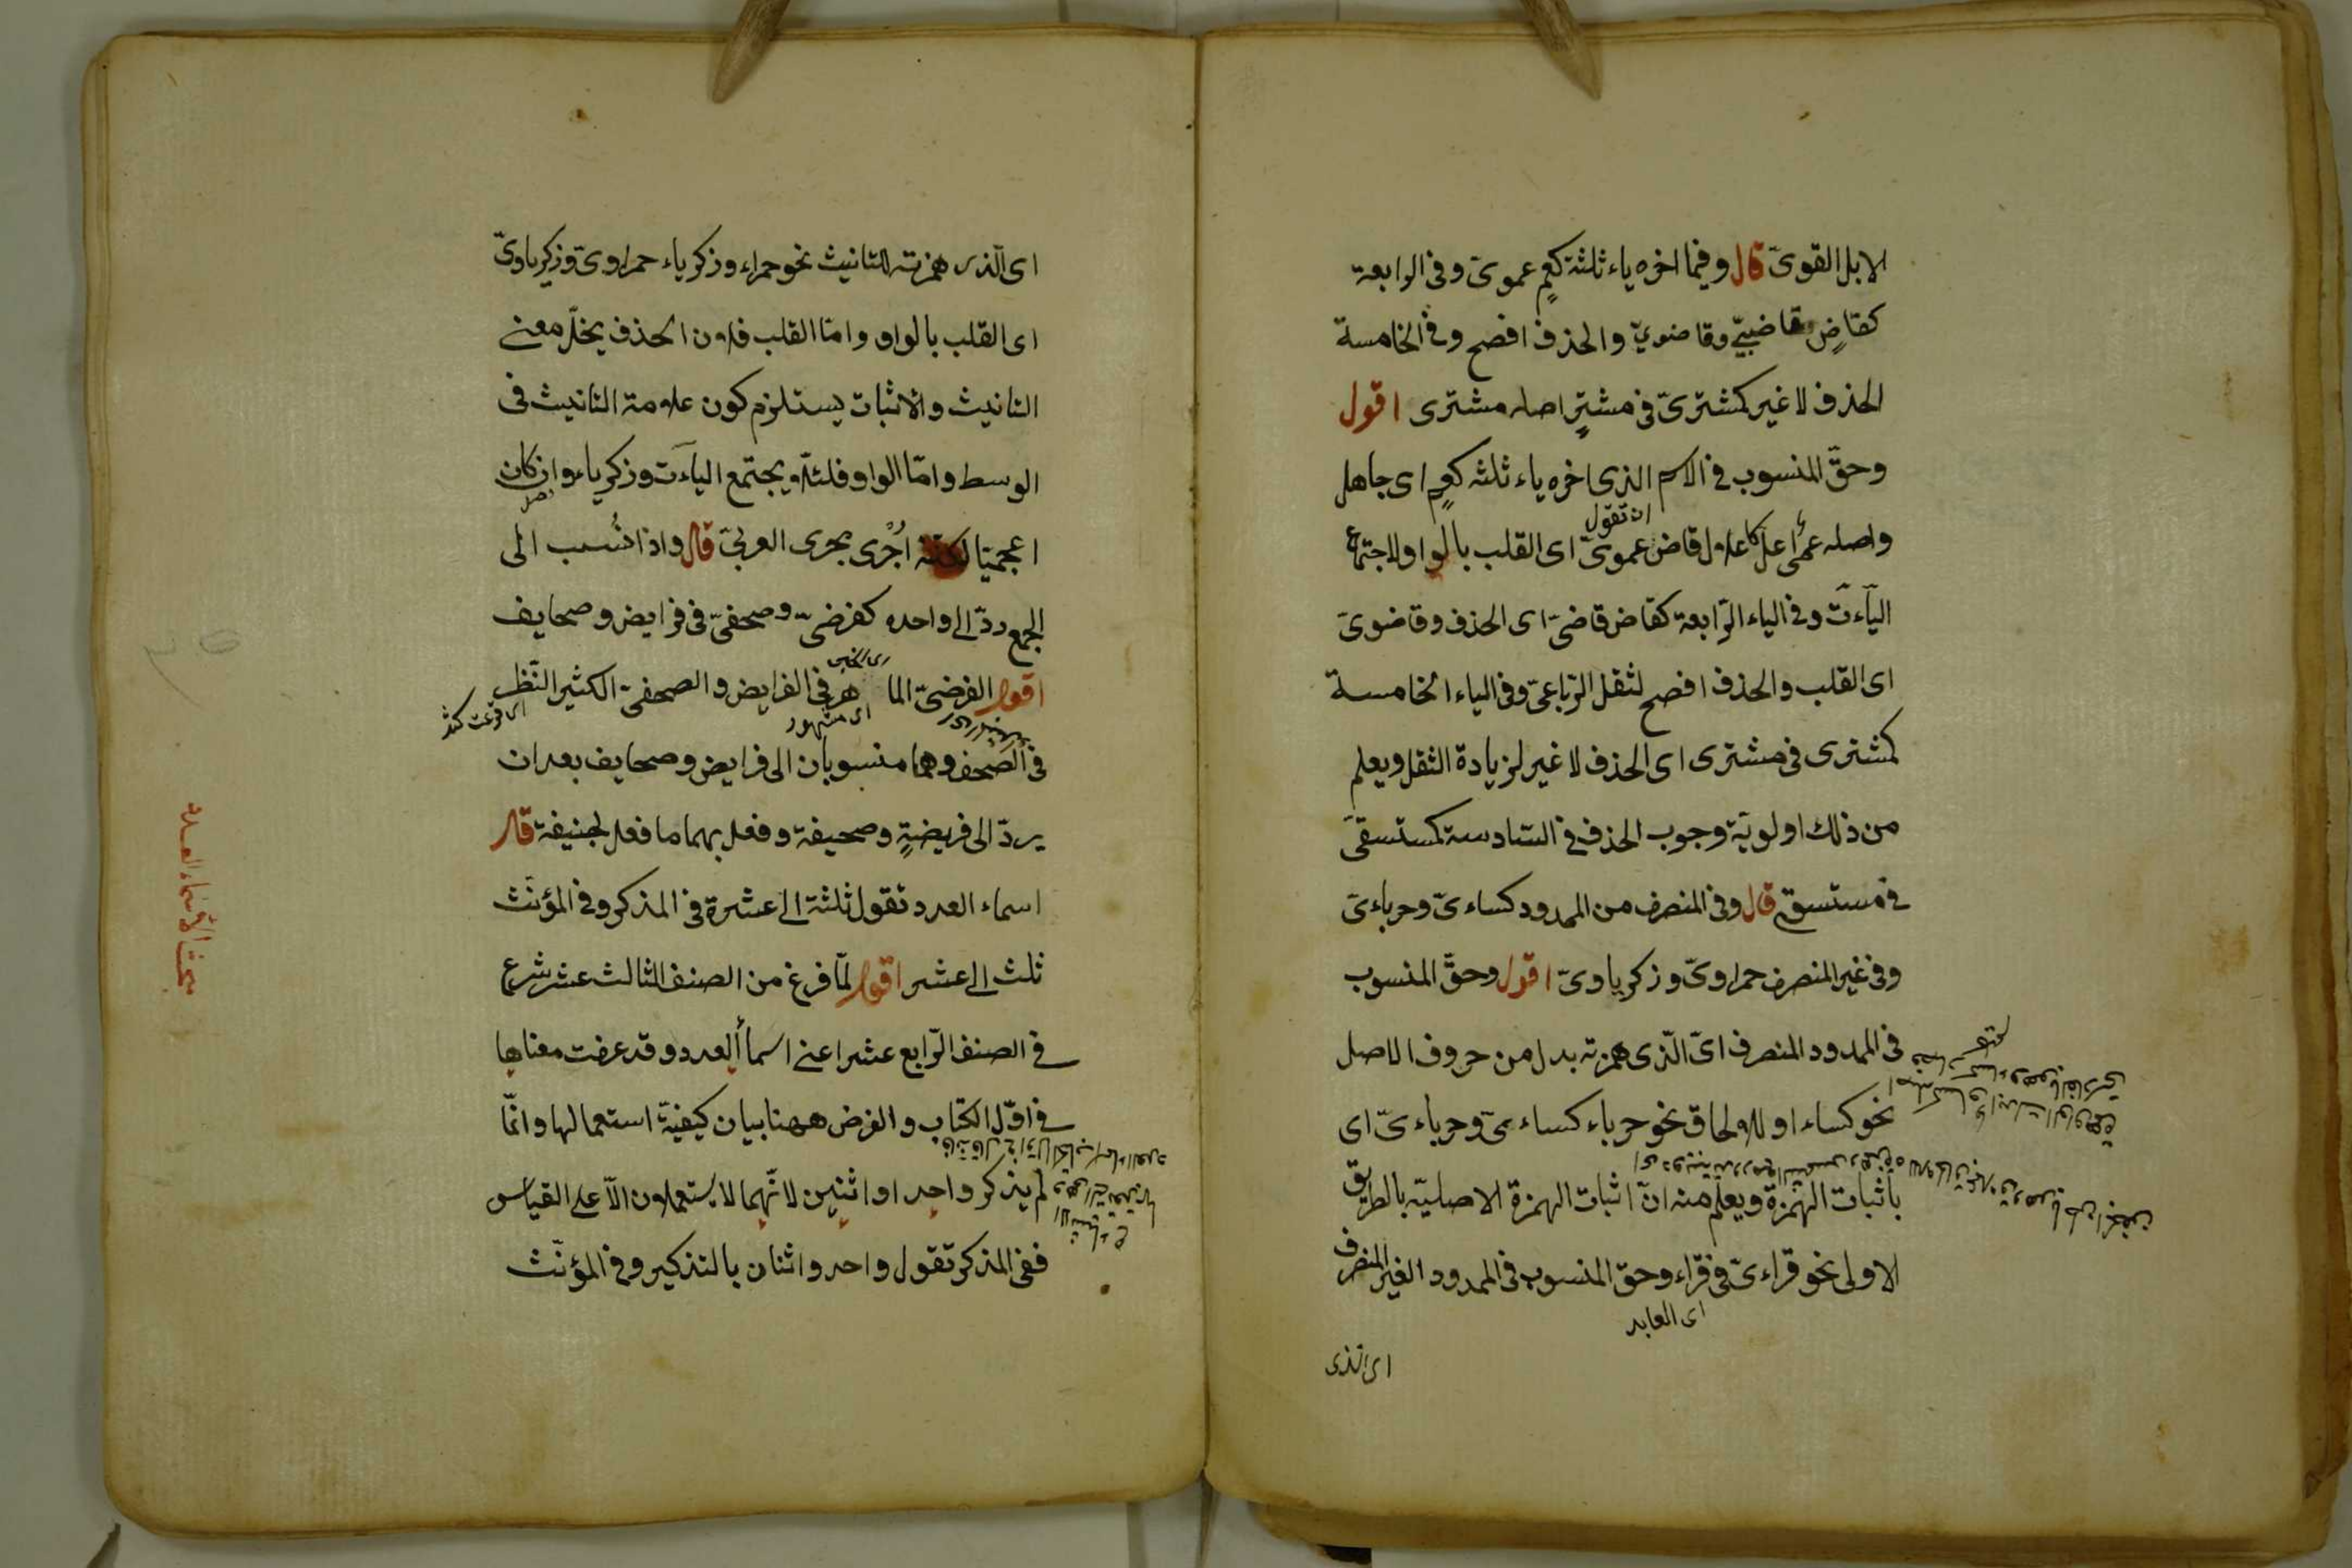 الابل القوىّ قال وفيما اخره ياء ثلثة كعمٍ عموىّ وفى الرابعة
كقاضٍ قاضيىّ وقاضوىّ والحذف افصح وفى الخامسة
الحذف لا غير كمشترىّ فى مشترٍ اصله مشترى اقول
وحقّ المنسوب فى الاسم الذى اخره ياء ثلثه كعمٍ اى جاهل
ان تقول
واصله عمى اعلّ كاعلال قاض عموىّ اى القلب بالواو لاجتماع
اليآءت وفى الياء الرّابعة كقاض قاضىّ اى الحذف وقاضوىّ
اى القلب والحذف افصح لثقل الرّباعىّ وفى الياء الخامسة
كمشترى فى مشترى اى الحذف لا غير لزيادة الثقل ويعلم
من ذلك اولويّة وجوب الحذف فى السّادسة كمستسقىّ
فى مستسقٍ قال وفى المنصرف من الممدود كساءىّ وحرباءىّ
وفى غير المنصرف حمراوىّ وزكرياوىّ اقول وحقّ المنسوب
فى الممدود المنصرف اىّ الّذى همزته بدل من حروف الاصل
نحو كساء او للالحاق نحو حرباء كساءىّ وحرباءىّ اى
باثبات الهمزة ويعلم منه انّ اثبات الهمزة الاصليّه بالطريق
الاولى نحو قراءىّ فى قرّاء وحقّ المنسوب فى الممدود الغير المنصرف
اى العابد
اى الّذى
اى الّذى همزته للتانيث نحو حمراء وزكرياء حمراوىّ وزكرياوىّ
اى القلب بالواو وامّا القلب فلان الحذف يخلّ معنى
التانيث والاثبات يستلزم كون علامة التانيث فى
الوسط وامّا الواو فلئلّا يجتمع اليآءت وزكرياء وان كان
اعجميّا لكنّه اجْرى مجرى العربىّ قال واذا نُسب الى
الجمع ردّ الى واحده كفرضىّ وصحفىّ فى فرايض وصحايف
اقول الفرضىّ الماهر فى الفرايض والصحفىّ الكثير النّظر
اى مشهور
فى الصّحف وهما منسوبان الى فرايض وصحايف بعد ان
يردّ الى فريضةٍ وصحيفة وفعل بهما ما فعل بحنيفة قال
اسماء العدد تقول ثلثة الى عشرة فى المذكر وفى المؤنّث
ثلث الى عشر اقول لمّا فرغ من الصنف الثالث عشر شرع
فى الصنف الرّابع عشر اعنى اسمأ العدد وقد عرفت معناها
فى اوّل الكتاب والغرض ههنا بيان كيفيّة استعمالها وانّما
لم يذكر واحد او اثنين لانّهما لا يستعملان الّا على القياس
ففى المذكر تقول واحد واثنان بالتذكير وفى المؤنّث
بحث الأسماء العدد